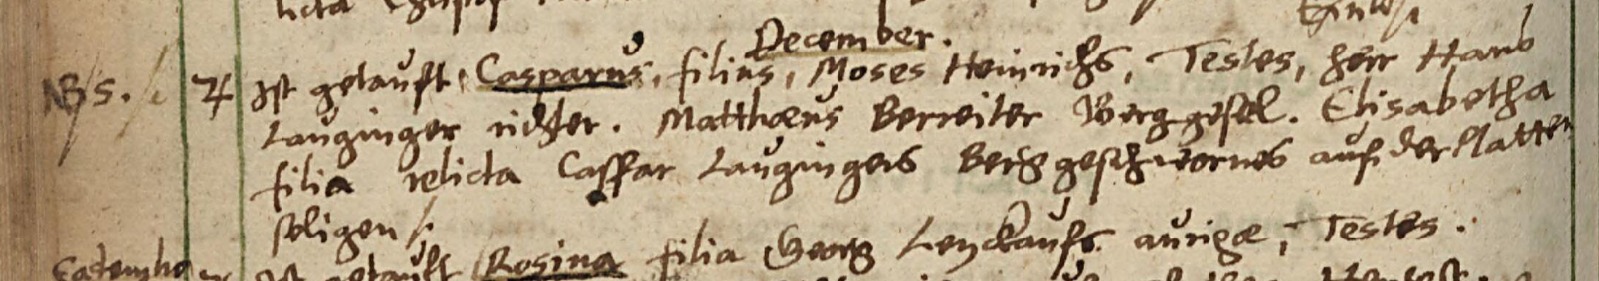 December.
NB/5. 4 Ist getauft, Casparus, filius, Moses Heinrichs, Testes, herr Hans
Lauginger richter. Matthæus Berreiter Berggesel. Elisabetha
filia relicta Casspar Laugingers Berggeschwornes auf der Platten
seligen
Ist getauft Rosina filia Georg Lenckaufs aurigæ, Testes.